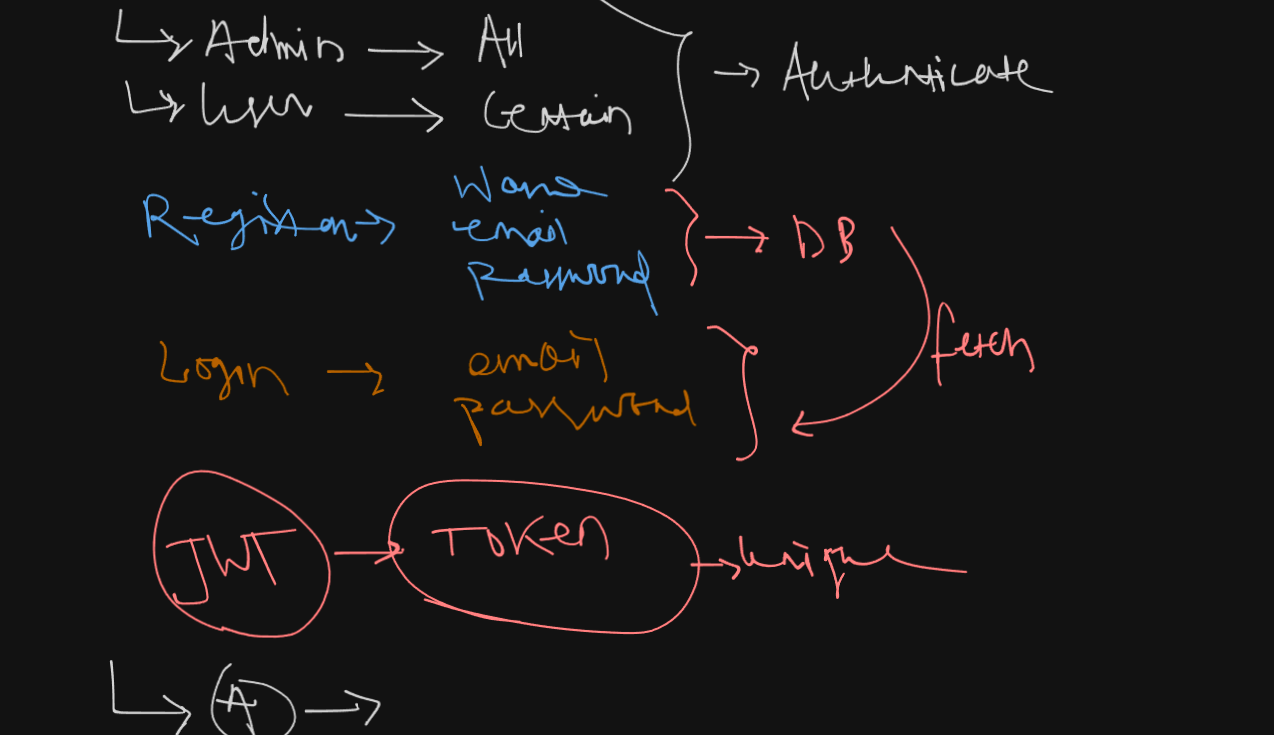 ↳ Admin → All
↳ User → Certain
→ Authenticate
Register →
Name
email
password
→ DB
fetch
Login →
email
password
JWT → TOKEN → Unique
↳ A →